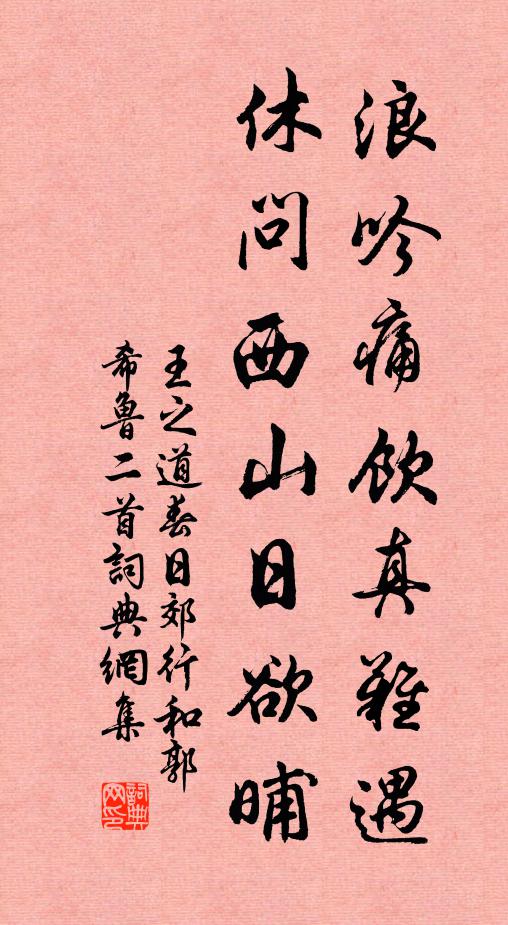 浪吟痛飲真難遇
休問西山日欲晡
王之道春日郊行和郭
希魯二首詞典網集
詞典
网印